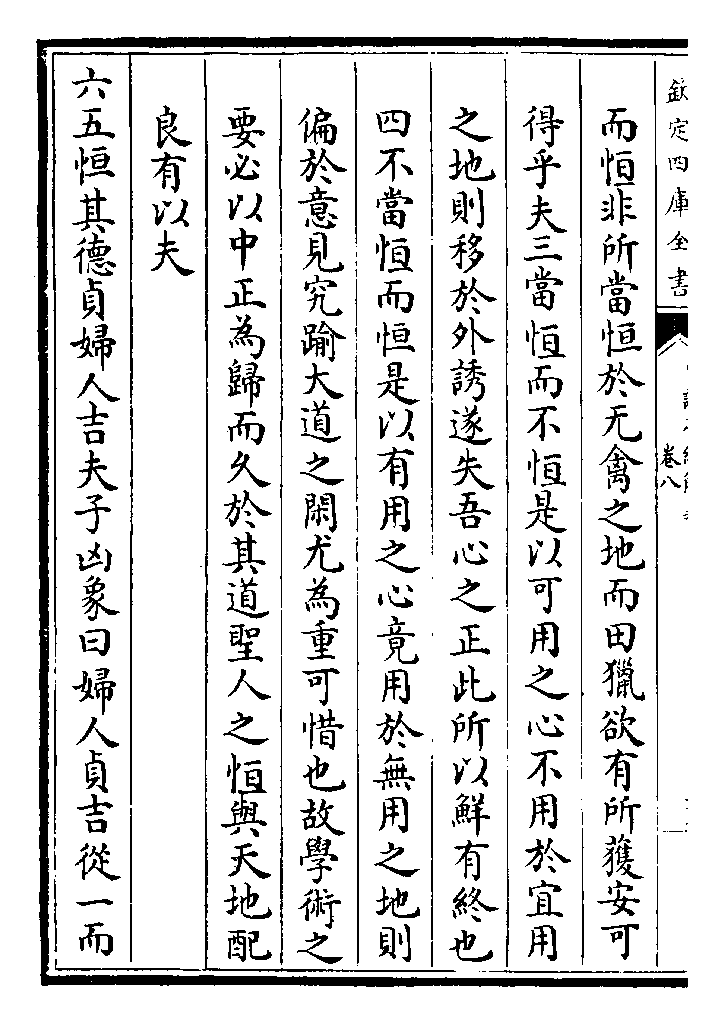 欽定四庫全書
卷八
而恒非所當恒於无禽之地而田獵欲有所獲安可
得乎夫三當恒而不恒是以可用之心不用於宜用
之地則移於外誘遂失吾心之正此所以鮮有終也
四不當恒而恒是以有用之心竟用於無用之地則
偏於意見究踰大道之閑尤為重可惜也故學術之
要必以中正為歸而久於其道聖人之恒與天地配
良有以夫
六五恒其德貞婦人吉夫子凶象曰婦人貞吉從一而